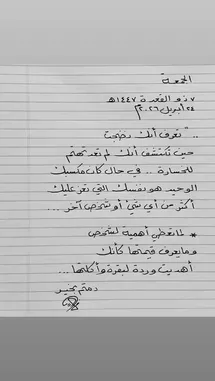 الجمعة
٧ ذو القعدة ١٤٤٧هـ
٢٤ أبريل ٢٠٢٦م
.. " تعرف أنك نضجت
حين تكتشف أنك لم تعد تهتم
للخسارة .. في حال كان مكسبك
الوحيد هو نفسك التي تعز عليك
أكثر من أي شيء أو شخص آخر ....
* لا تعطي أهمية لشخص
وما يعرف قيمتها كأنك
أهديت وردة لبقرة وأكلتها ...
دمتم بخير